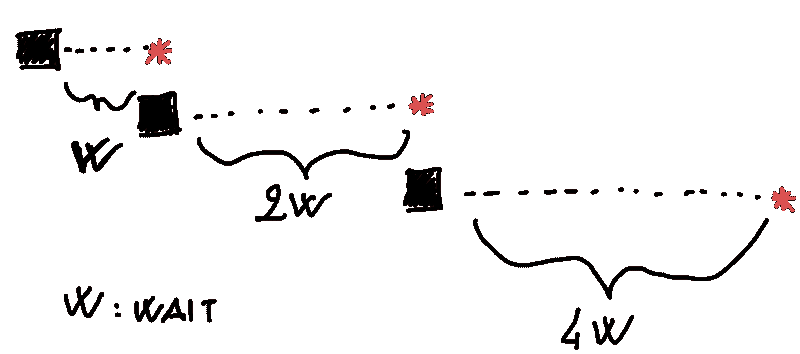 W
2W
4W
W: WAIT